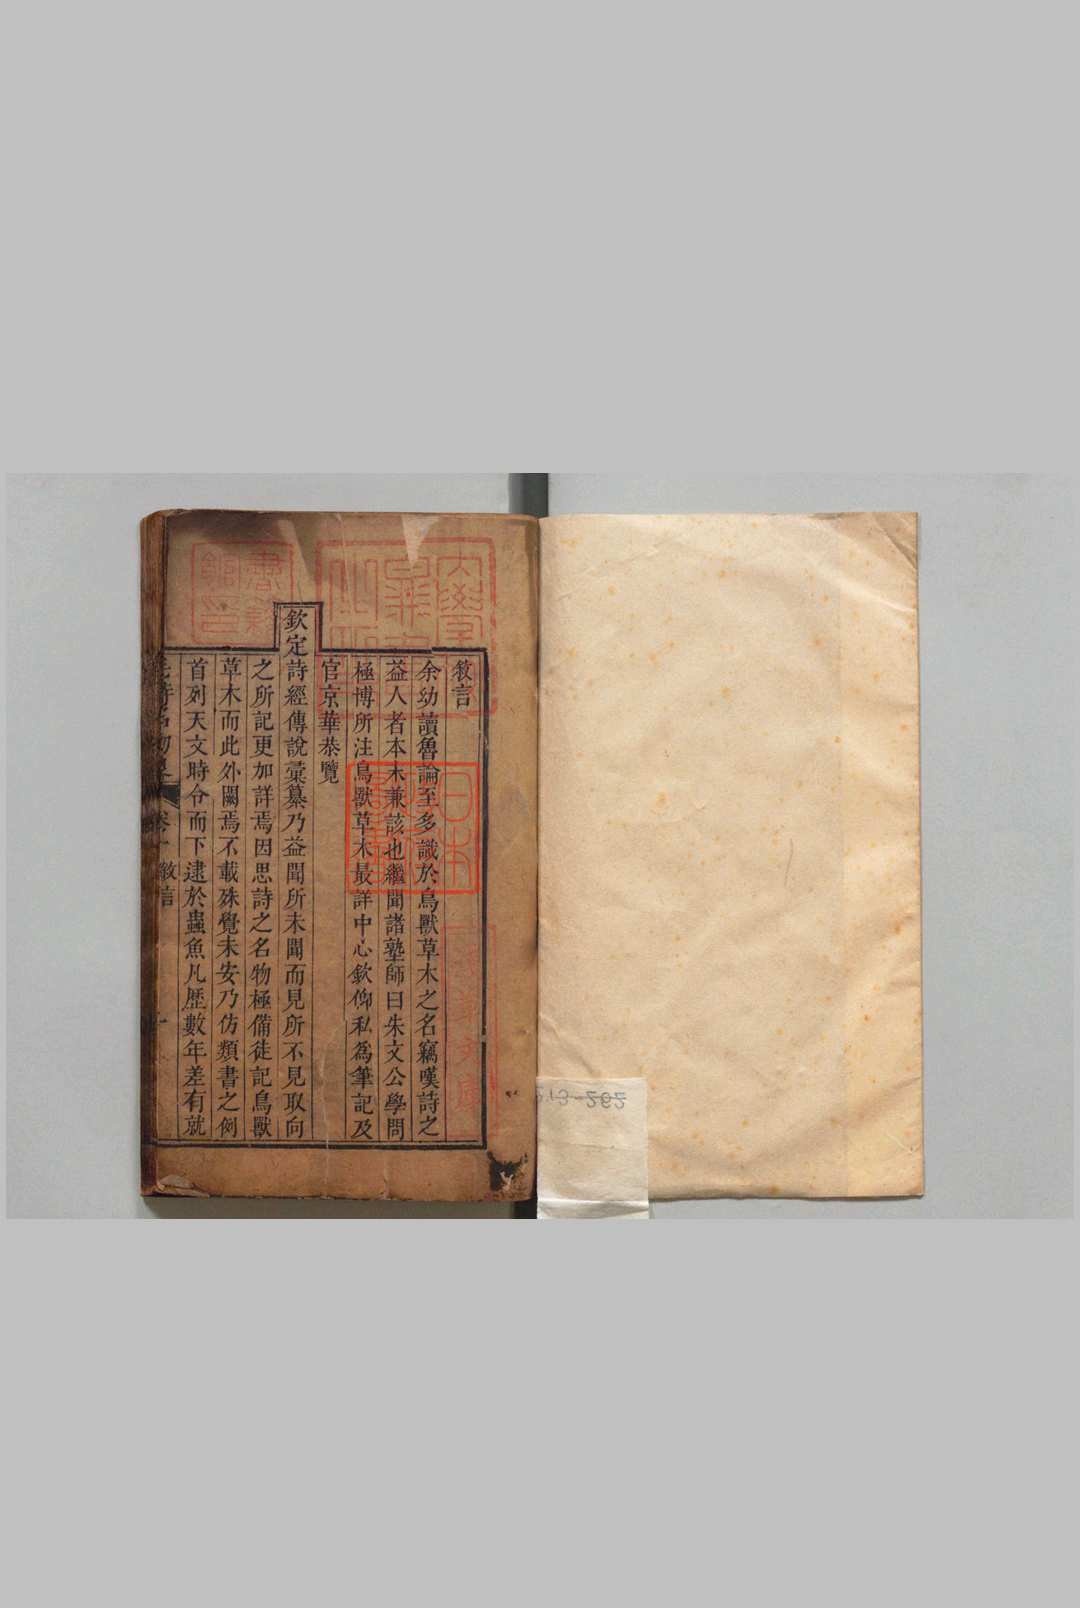 敘言
余幼讀魯論至多識於鳥獸草木之名竊嘆詩之
益人者本末兼該也繼聞諸塾師曰朱文公學問
極博所注鳥獸草木最詳中心欽仰私為筆記及
官京華恭覽
欽定詩經傳說彙纂乃益聞所未聞而見所不見取向
之所記更加詳焉因思詩之名物極備徒記鳥獸
草木而此外闕焉不載殊覺未安乃仿類書之例
首列天文時令而下逮於蟲魚凡歷數年差有就
卷一 敘言 一